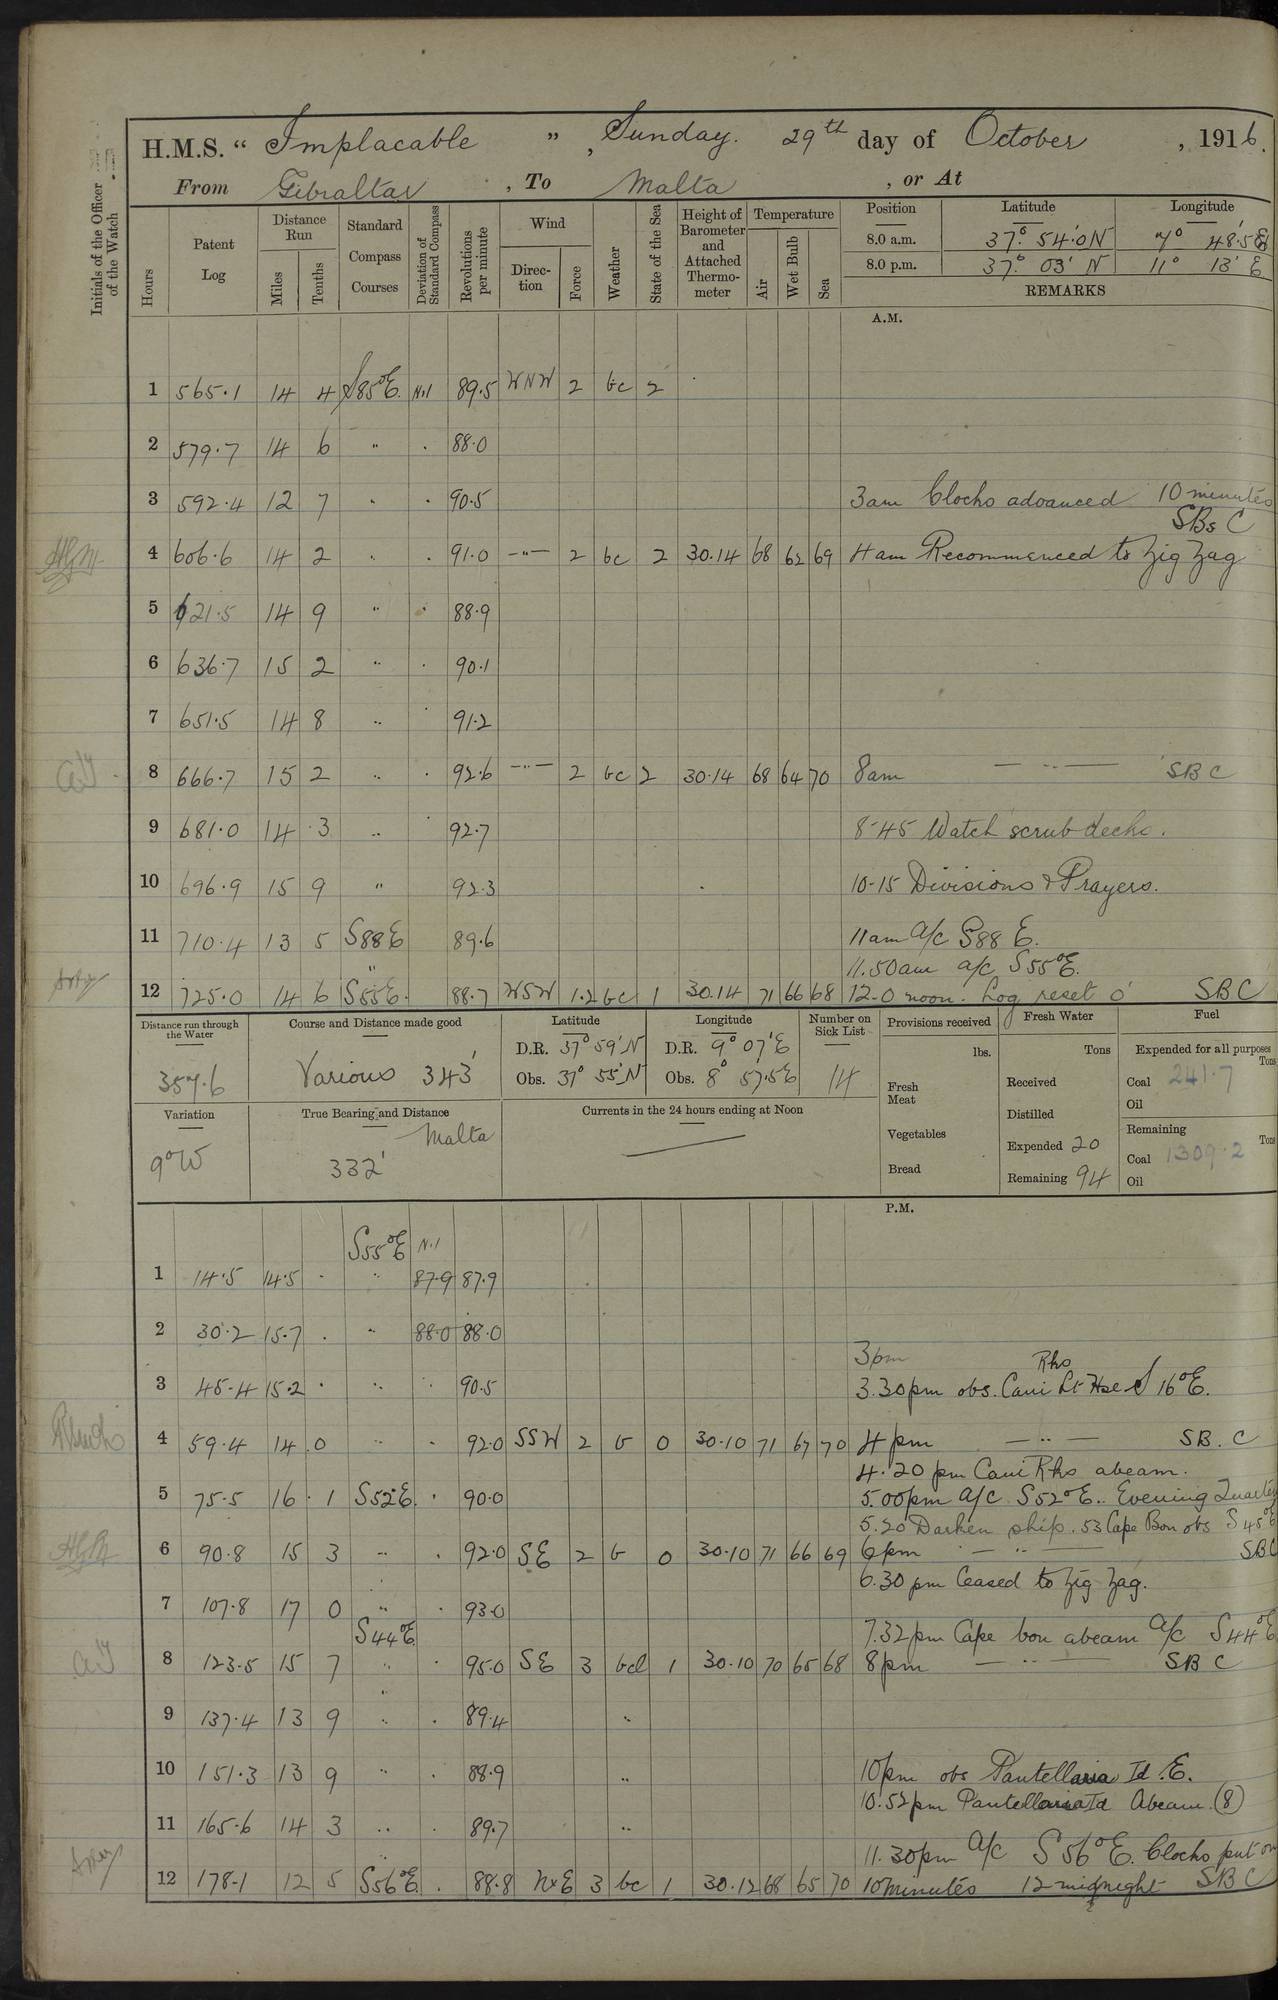 H.M.S. “ Implacable ”, Sunday. 29th day of October , 1916.
From Gibraltar , To Malta , or At
Initials of the Officer of the Watch
Hours
Patent Log
Distance Run
Miles
Tenths
Standard Compass Courses
Deviation of Standard Compass
Revolutions per minute
Wind
Direction
Force
Weather
State of the Sea
Height of Barometer and Attached Thermometer
Temperature
Air
Wet Bulb
Sea
Position Latitude Longitude
8.0 a.m. 37° 54'.0 N 7° 48'.5 E
8.0 p.m. 37° 03' N 11° 13' E
REMARKS
A.M.
1 565.1 14 4 S85°E. Nil 89.5 WNW 2 bc 2
2 579.7 14 6 " . 88.0
3 592.4 12 7 " . 90.5 3am Clocks advanced 10 minutes
SBs C
4 606.6 14 2 " . 91.0 —"— 2 bc 2 30.14 68 62 69 4am Recommenced to Zig Zag
5 621.5 14 9 " . 88.9
6 636.7 15 2 " . 90.1
7 651.5 14 8 " . 91.2
8 666.7 15 2 " . 92.6 —"— 2 bc 2 30.14 68 64 70 8am — " — SBC
9 681.0 14 3 " . 92.7 8-45 Watch scrub decks.
10 696.9 15 9 " 92.3 10-15 Divisions & Prayers.
11 710.4 13 5 S88E 89.6 11am A/c S88 E.
11.50am a/c S55°E.
12 725.0 14 6 S55E. 88.7 WSW 1.2 bc 1 30.14 71 66 68 12.0 noon. Log reset 0 SBC
Distance run through the Water
357.6
Course and Distance made good
Various 343'
Latitude
D.R. 37° 59' N
Obs. 37° 55' N
Longitude
D.R. 9° 07' E
Obs. 8° 57'.5 E
Number on Sick List
14
Provisions received
lbs.
Fresh Meat
Vegetables
Bread
Fresh Water
Tons
Received
Distilled
Expended 20
Remaining 94
Fuel
Expended for all purposes
Tons
Coal 241.7
Oil
Remaining
Tons
Coal 1309.2
Oil
Variation
9°W
True Bearing and Distance
Malta
332'
Currents in the 24 hours ending at Noon
—
P.M.
S55°E Nil
1 14.5 14.5 . " 87.9 87.9
2 30.2 15.7 . " 88.0 88.0
3pm Rks
3 45.4 15.2 . " . 90.5 3.30pm obs. Cani Lt Hse S 16°E.
4 59.4 14 .0 " . 92.0 SSW 2 b 0 30.10 71 67 70 4pm — " — SB. C
4.20 pm Cani Rks abeam.
5 75.5 16 1 S52E. . 90.0 5.00pm A/c S52°E. Evening Quarters
5.20 Darken ship. 53 Cape Bon obs S 45°E
6 90.8 15 3 " . 92.0 SE 2 b 0 30.10 71 66 69 6pm — " — SBC
6.30 pm Ceased to Zig Zag.
7 107.8 17 0 " . 93.0
S44°E 7.32pm Cape bon abeam A/c S44°E
8 123.5 15 7 " . 95.0 SE 3 bcl 1 30.10 70 65 68 8pm — " — SBC
9 137.4 13 9 " . 89.4 "
10 151.3 13 9 " . 88.9 " 10pm obs Pantellaria Id. E.
10.52pm Pantellaria Id Abeam (8)
11 165.6 14 3 " . 89.7 "
11.30pm A/c S56°E. Clocks put on
12 178.1 12 5 S56°E . 88.8 NxE 3 bc 1 30.12 68 65 70 10 minutes 12 midnight SBC